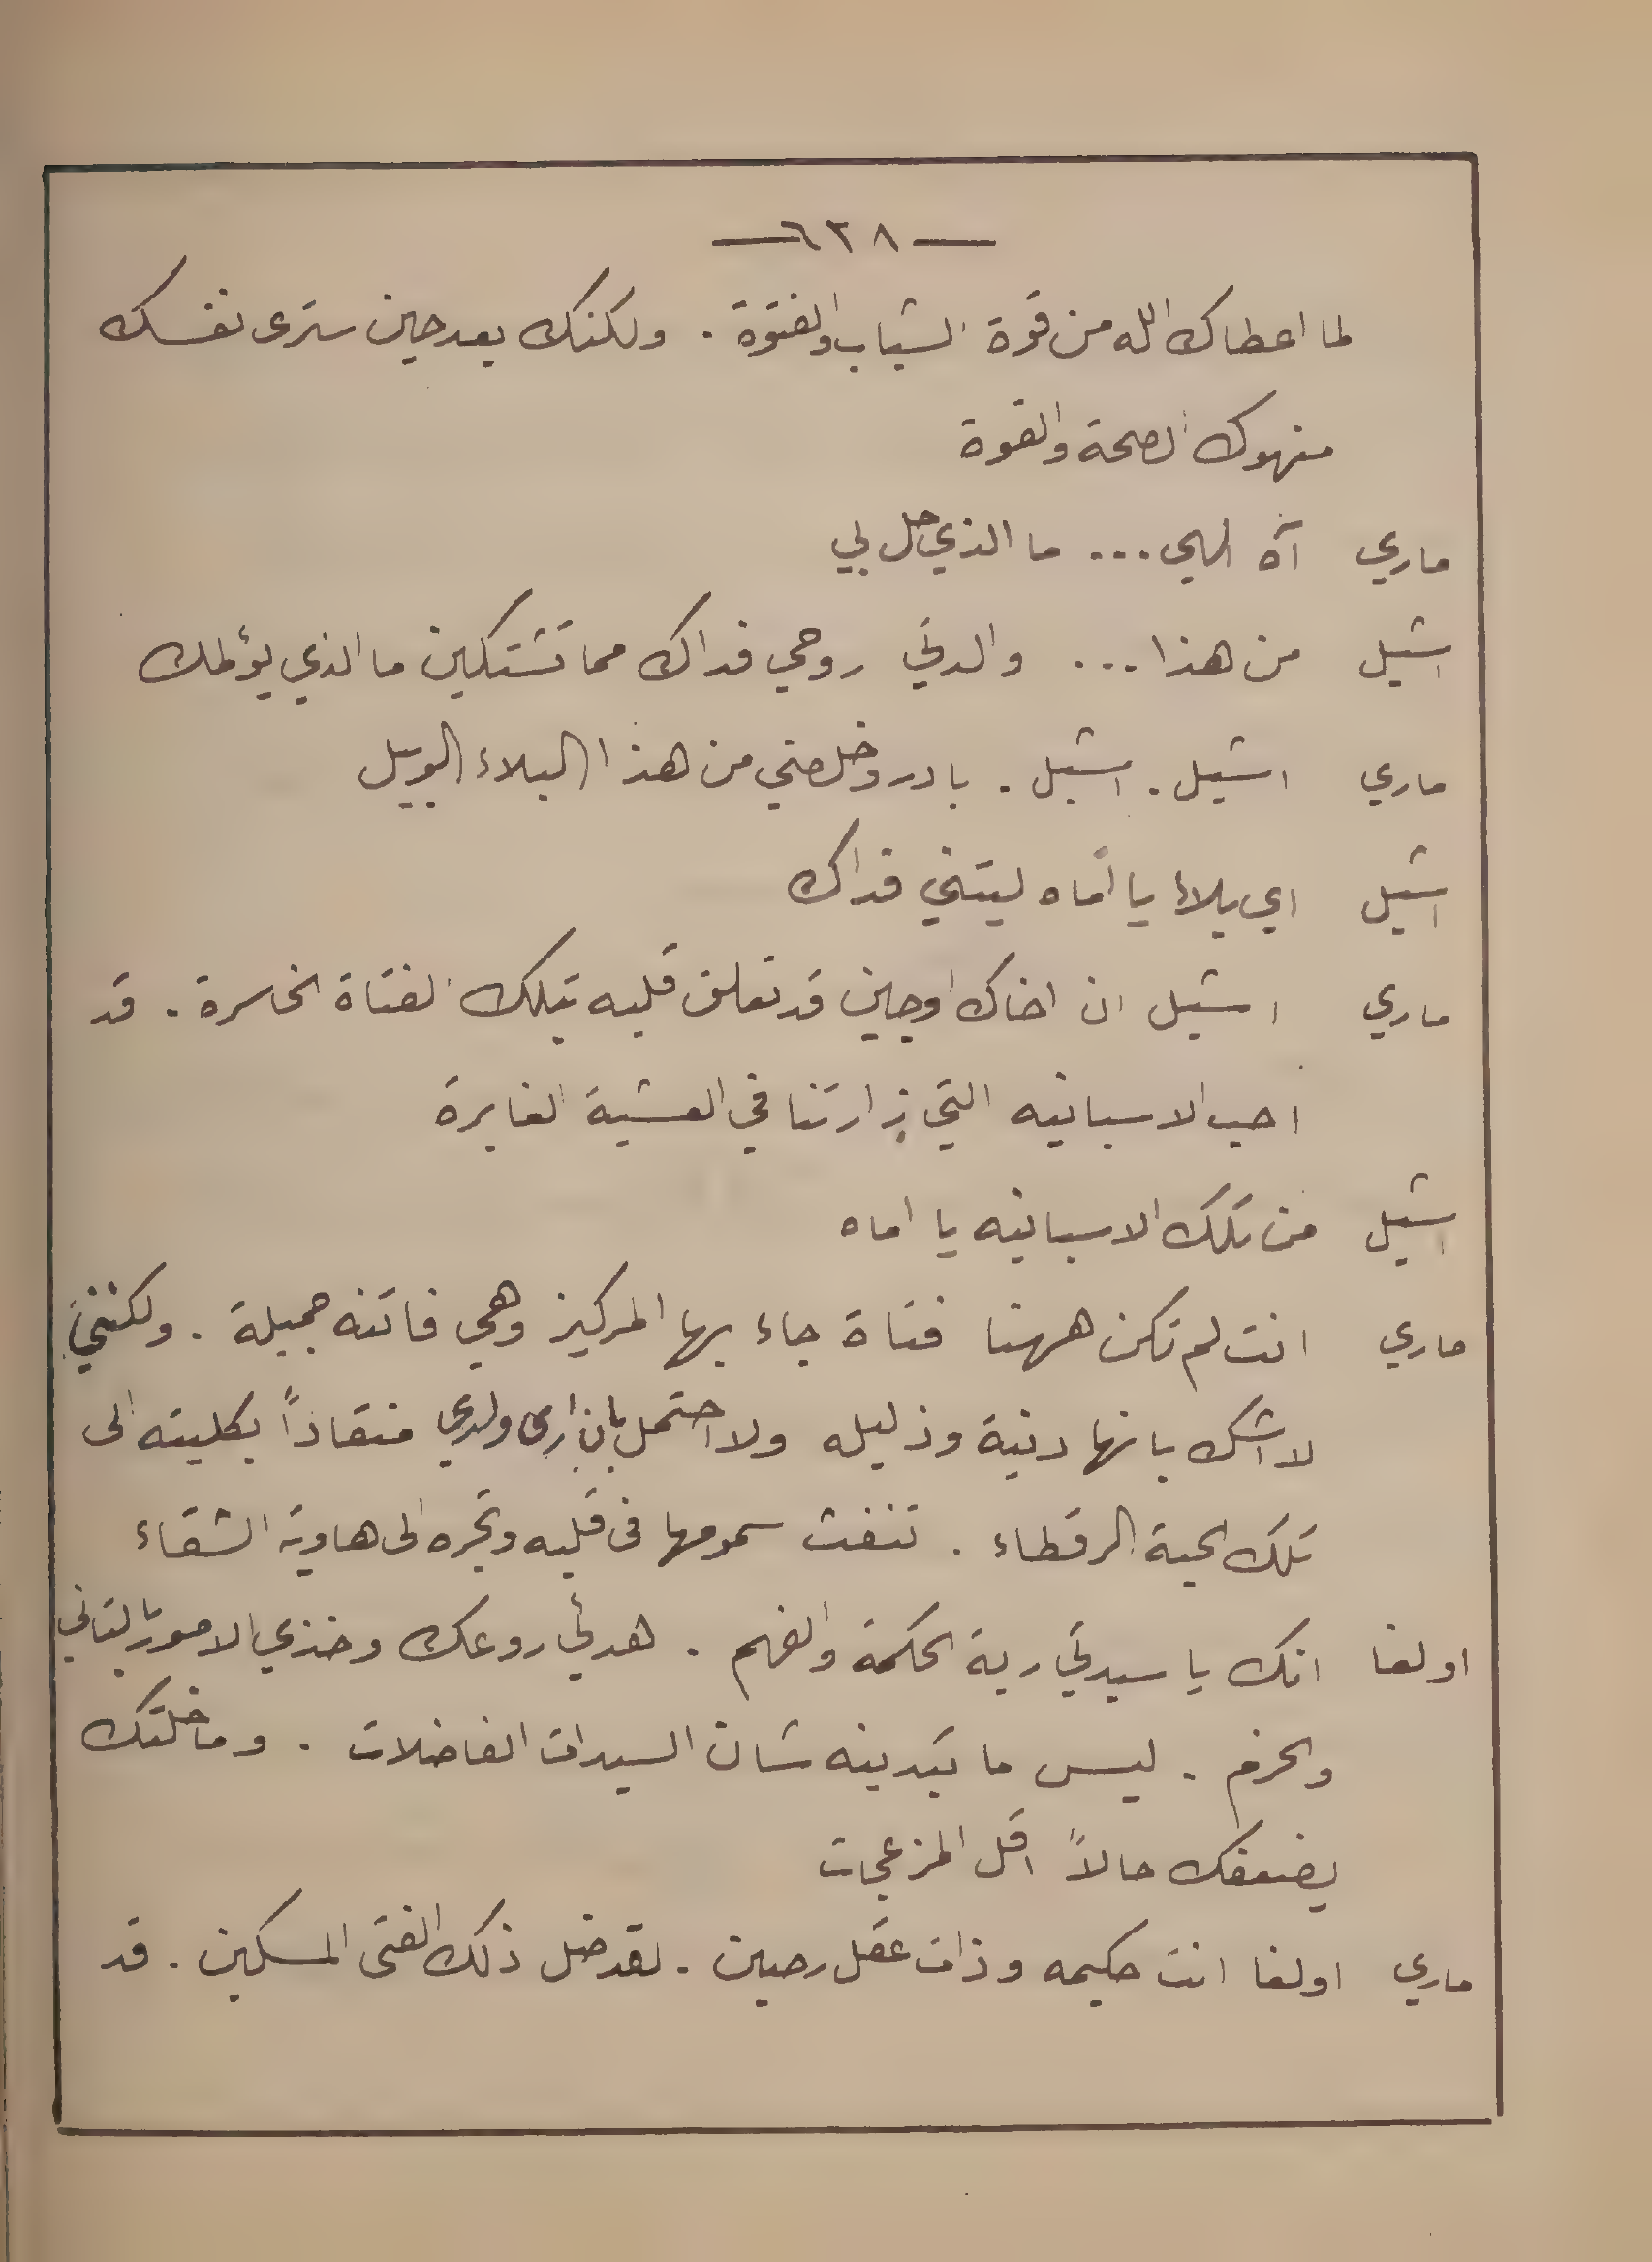 —٦٢٨—
لما اعطاك الله من قوة الشباب والفتوة . ولكنك بعد حين سترى نفسك
منهوك الصحة والقوة
ماري آه الهي ... ما الذي حل بي
اشيل من هذا ... والدتي روحي فداك مما تشتكين ما الذي يؤلمك
ماري اشيل . اشيل . بادر وخلصني من هذا البلاء الوبيل
اشيل اي بلاء يا أماه ليتني فداك
ماري اشيل ان اخاك اوجين قد تعلق قلبه بتلك الفتاة الخاسرة . قد
احب الاسبانيه التي زارتنا في العشية الغابرة
اشيل من تلك الاسبانيه يا اماه
ماري انت لم تكن ههنا فتاة جاء بها المركيز وهي فاتنه جميلة . ولكنني
لا اشك بانها دنية وذليله ولا احتمل بان ارى ولدي منقاداً بكليته الى
تلك الحية الرقطاء . تنفث سمومها فى قلبه وتجره الى هاوية الشقاء
اولغا انك يا سيدتي ربة الحكمة والفهم . هدئي روعك وخذي الامور بالتاني
والحزم . ليس ما تبدينه شان السيدات الفاضلات . وما خلتك
يضعفك حالاً اقل المزعجات
ماري اولغا انت حكيمه وذات عقل رصين . لقد ضل ذلك الفتى المسكين . قد